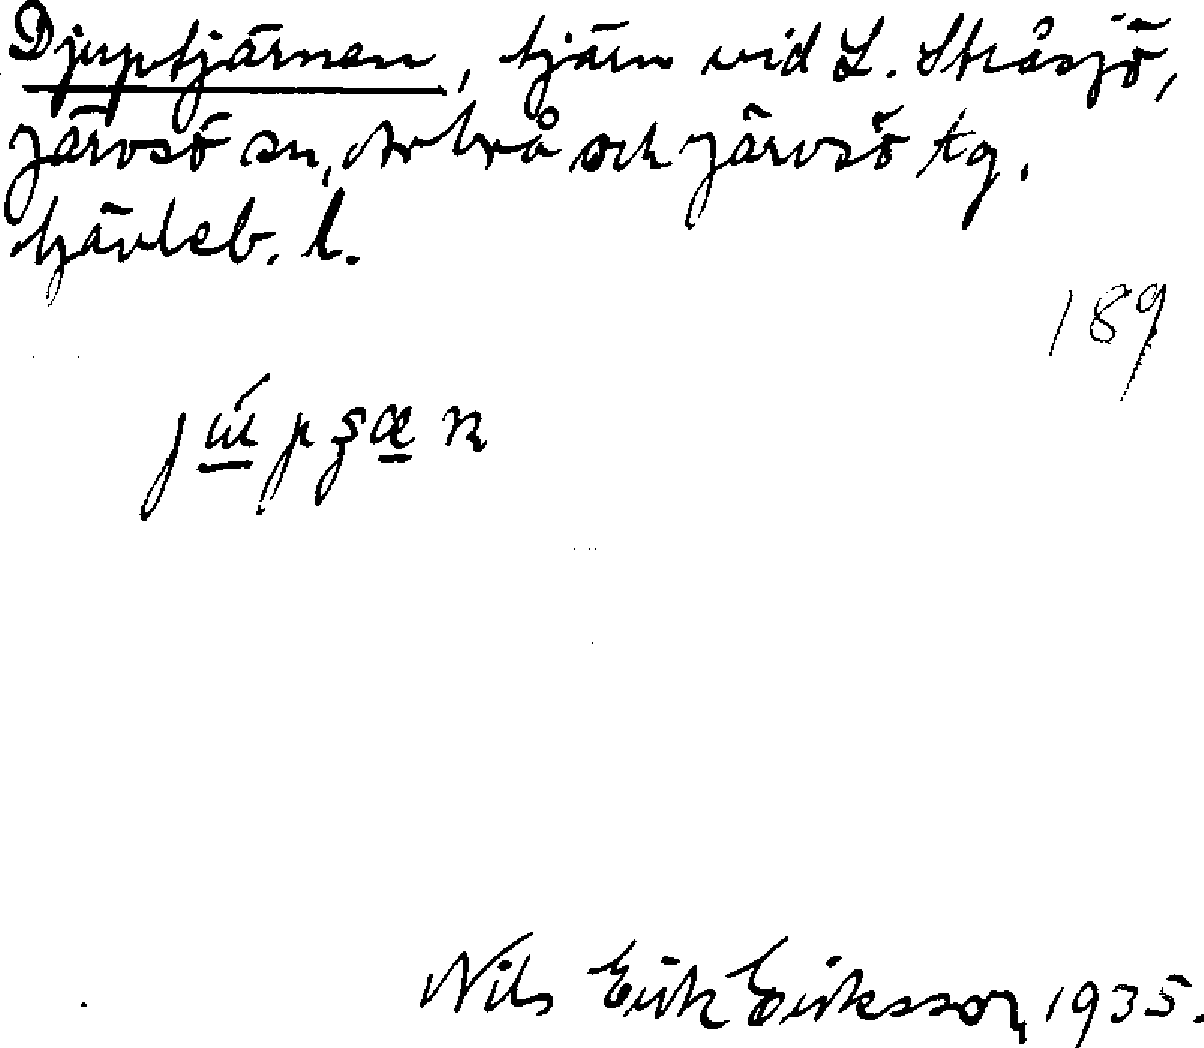 Djuptjärnen, tjärn vid L. Stråsjö,
Järvsö sn, Arbrå och Järvsö tg.
Gävleb. l.
189
Nils Erik Eriksson, 1935.